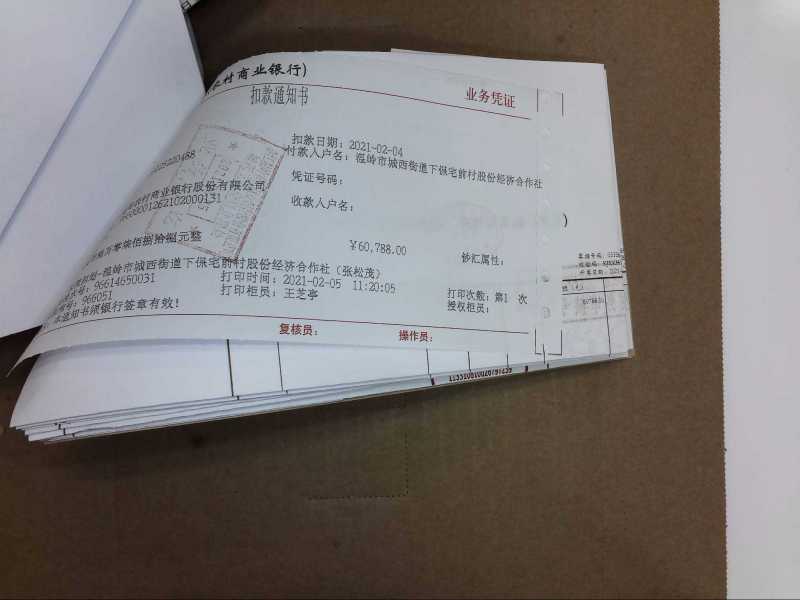 农村商业银行)
扣款通知书
业务凭证
扣款日期：2021-02-04
付款人户名：温岭市城西街道下保宅前村股份经济合作社
凭证号码：
农村商业银行股份有限公司
收款人户名：
零柒佰捌拾捌元整
￥60,788.00
钞汇属性：
温岭市城西街道下保宅前村股份经济合作社（张松茂）
96614650031
打印时间：2021-02-05 11:20:05
打印次数：第1 次
966051
打印柜员：王芝亭
授权柜员：
本通知书须银行签章有效！
复核员：
操作员：
)